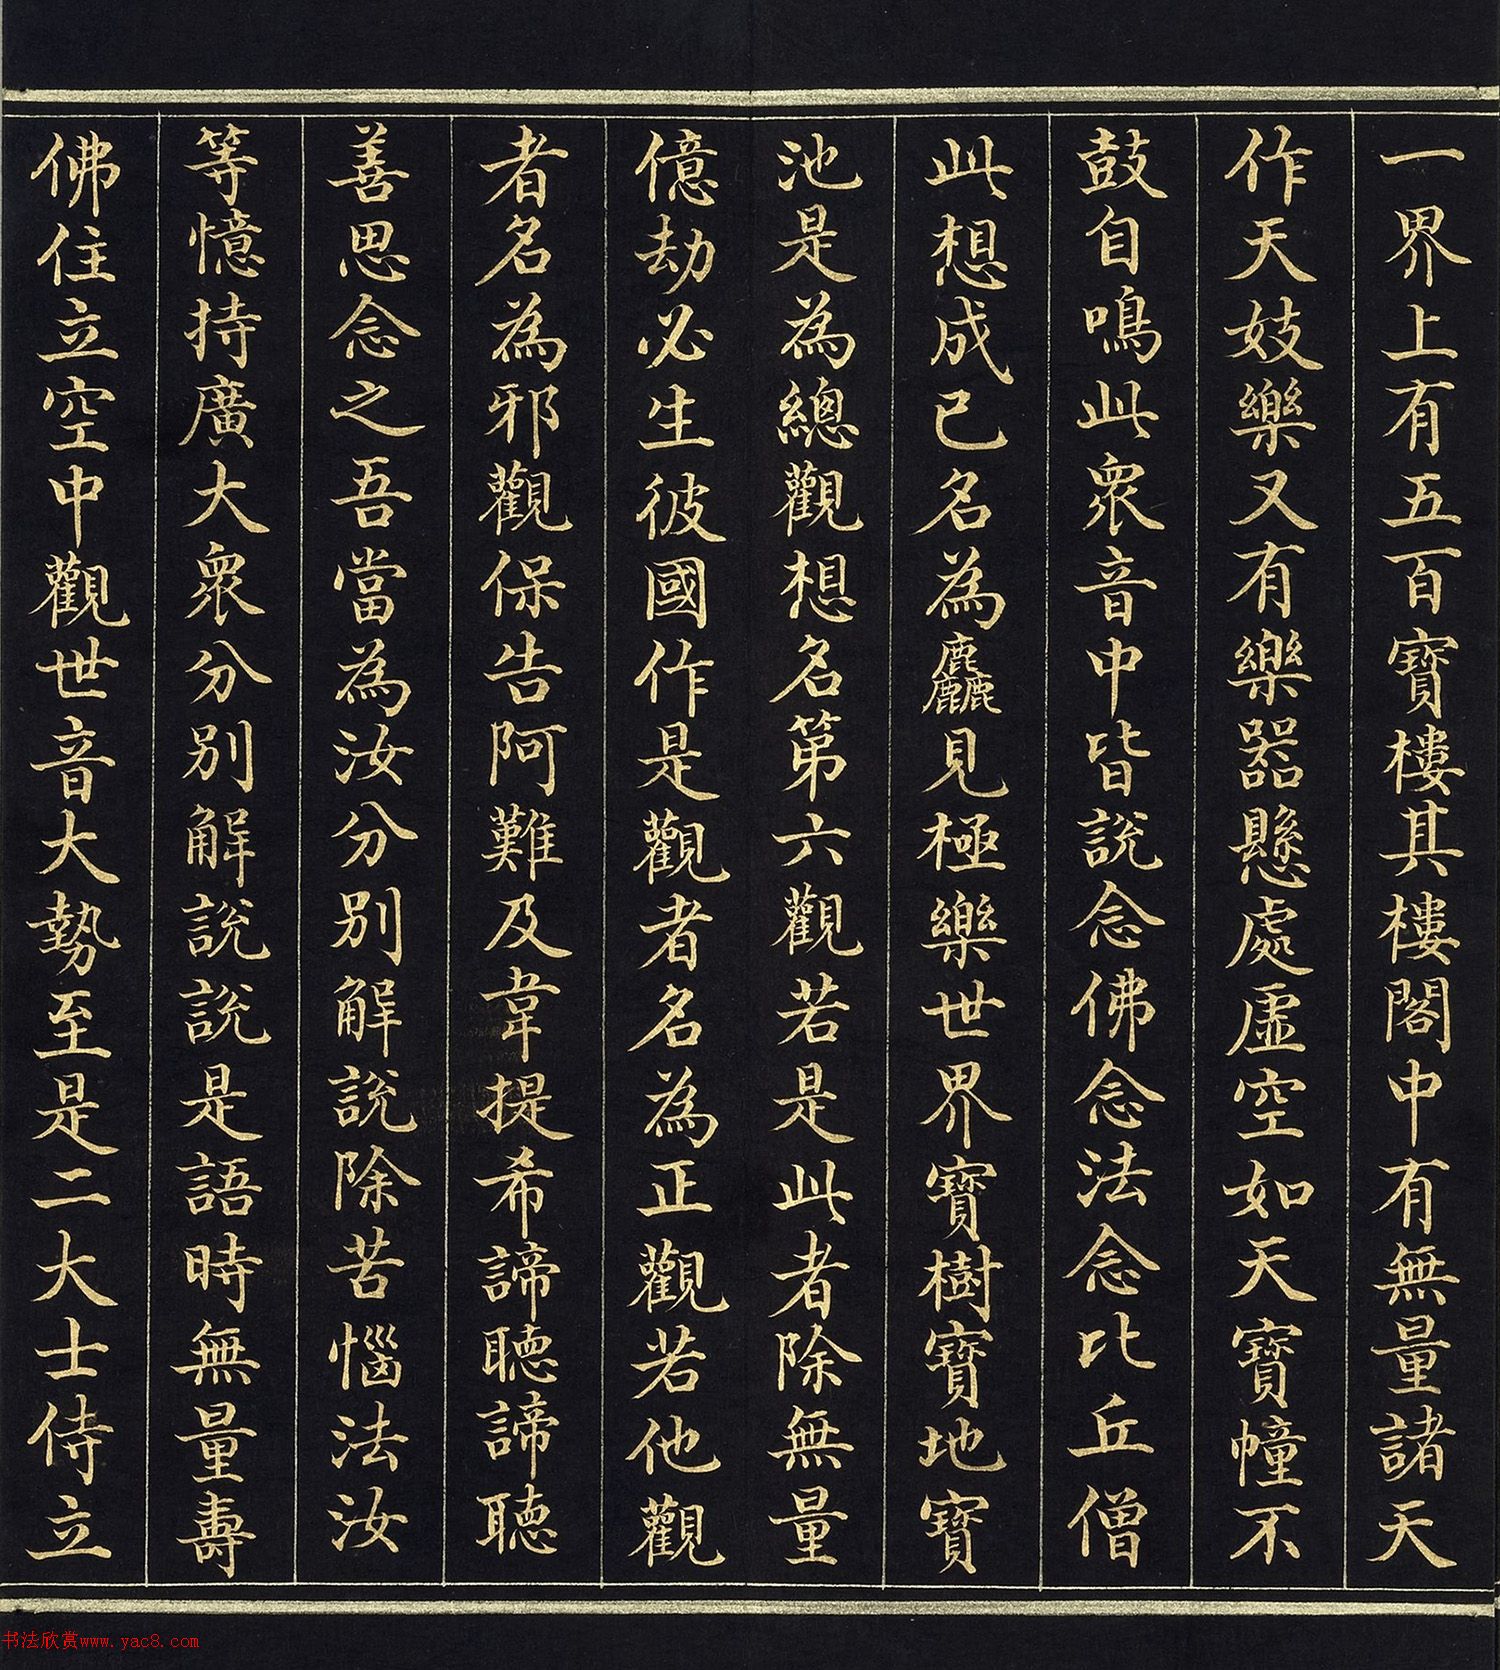 一界上有五百寶樓其樓閣中有無量諸天
作天妓樂又有樂器懸處虛空如天寶幢不
鼓自鳴此衆音中皆說念佛念法念比丘僧
此想成已名為麤見極樂世界寶樹寶地寶
池是為總觀想名第六觀若是此者除無量
億劫必生彼國作是觀者名為正觀若他觀
者名為邪觀保告阿難及韋提希諦聽諦聽
善思念之吾當為汝分別解說除苦惱法汝
等憶持廣大衆分別解說說是語時無量壽
佛住立空中觀世音大勢至是二大士侍立
书法欣赏www.yac8.com